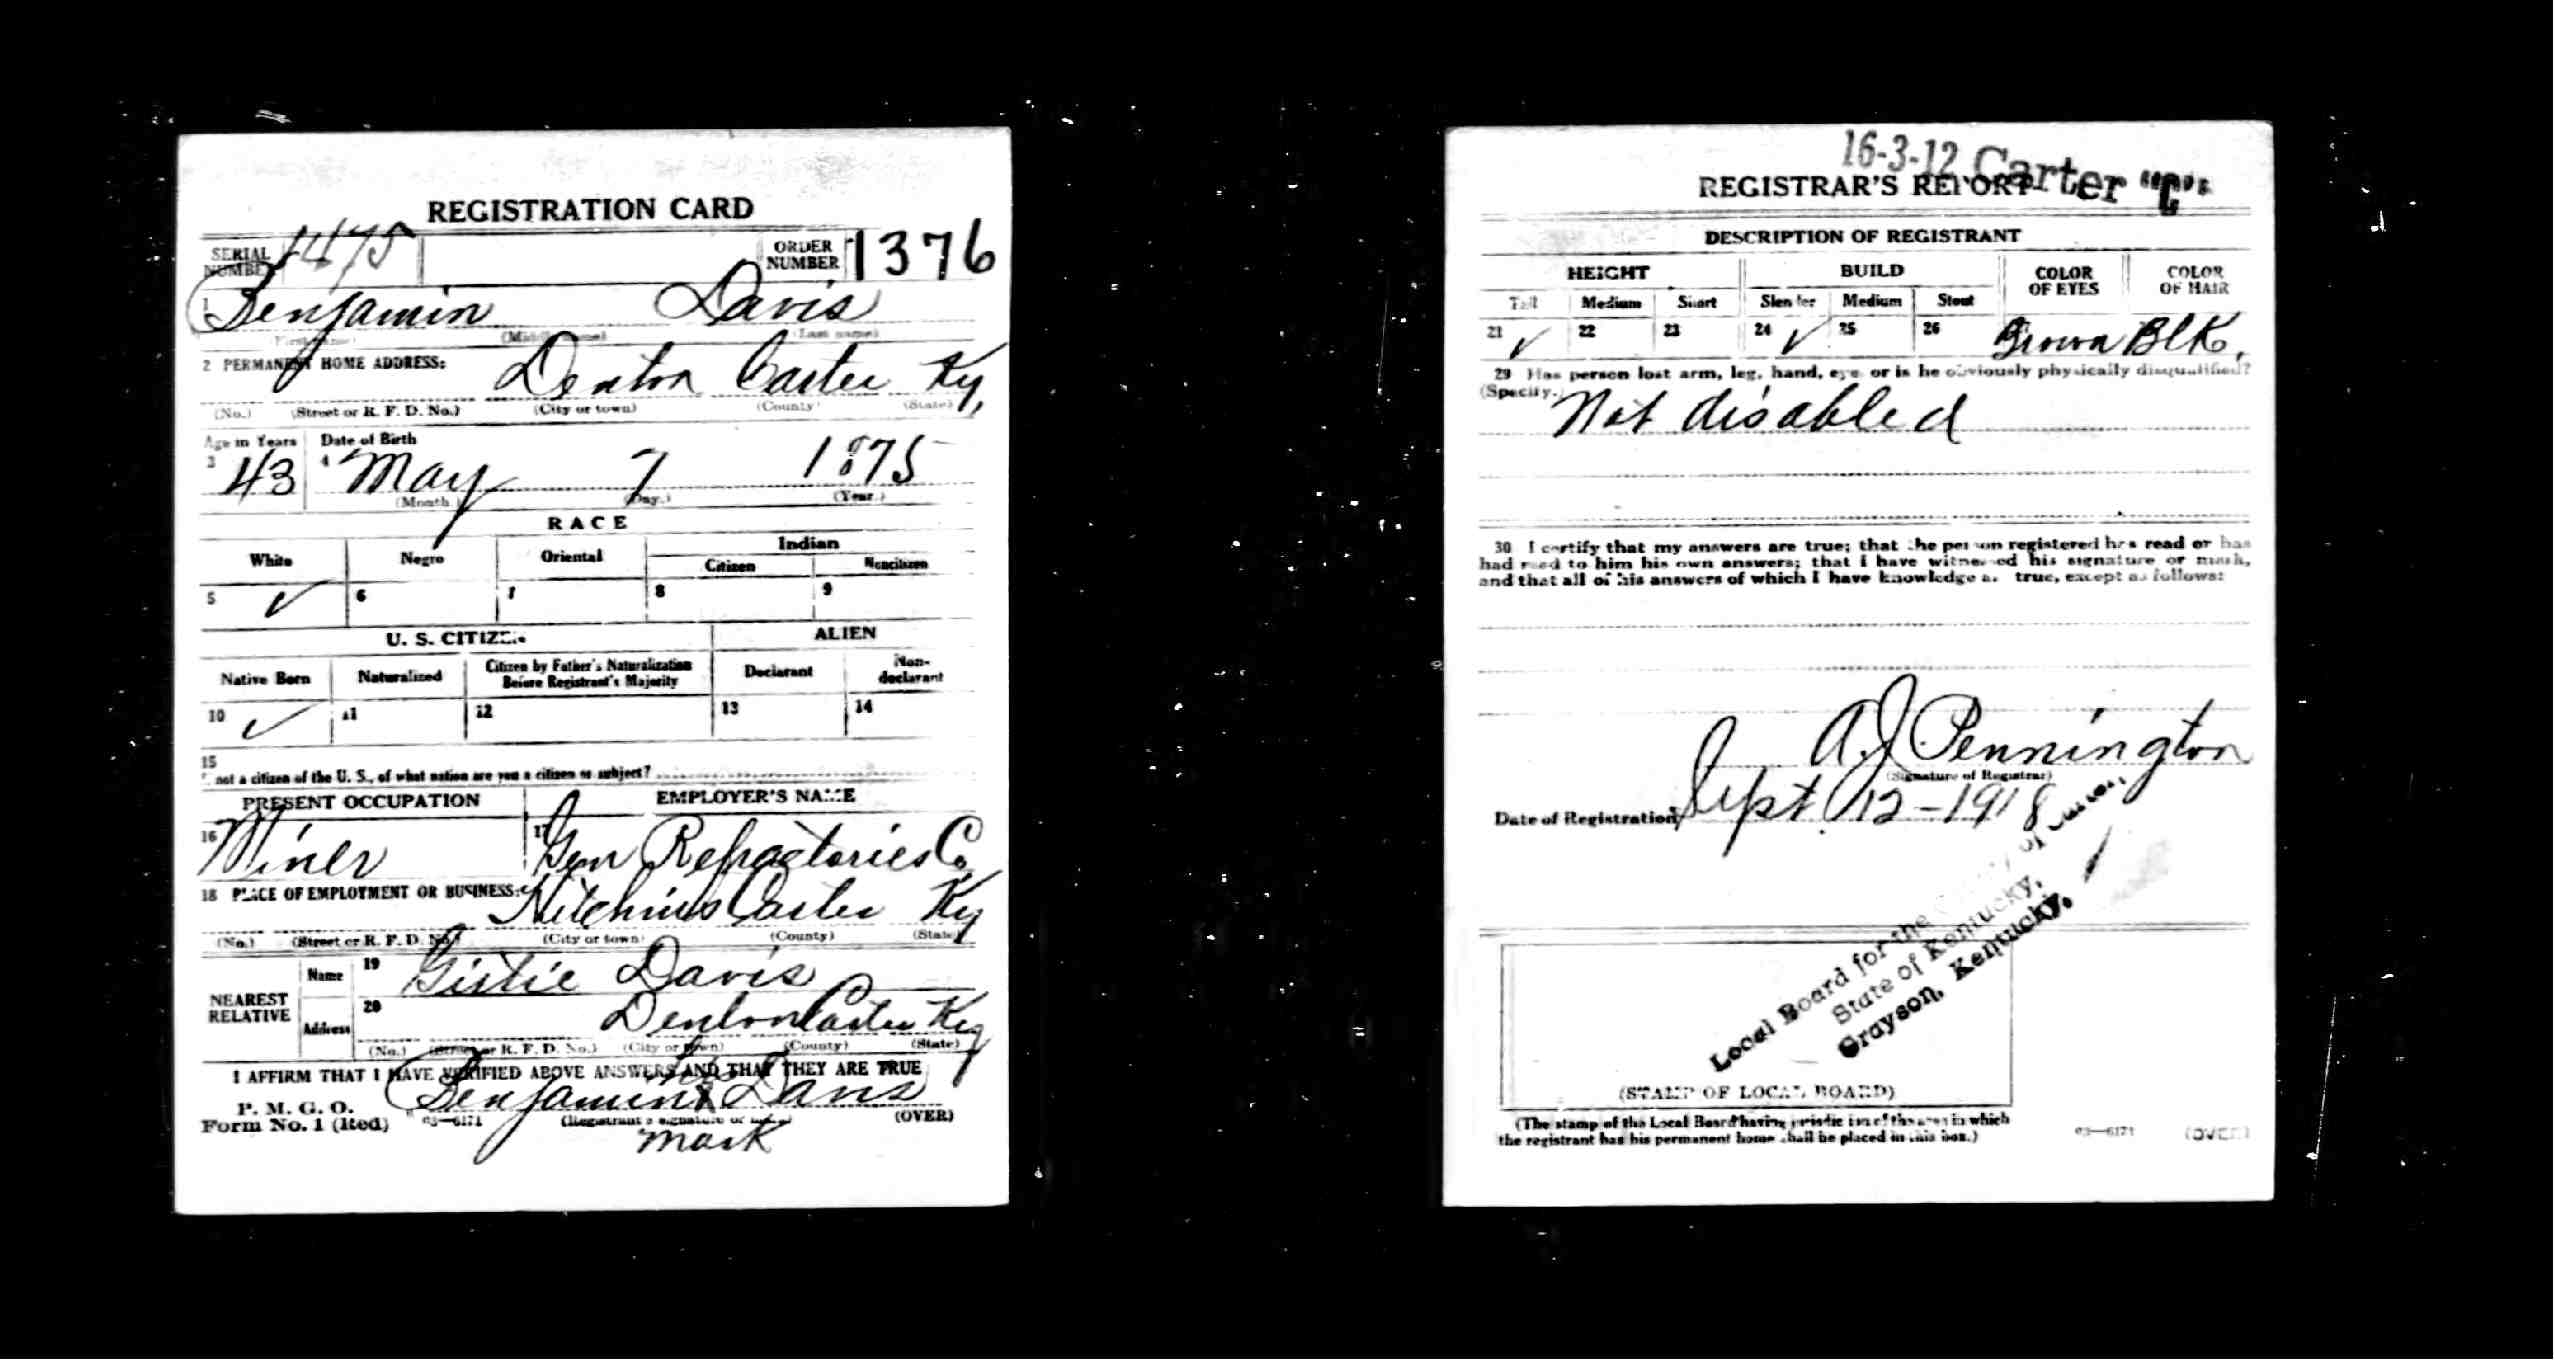 REGISTRATION CARD
SERIAL NUMBER 1475 ORDER NUMBER 1376
1 Benjamin Davis
(First name) (Middle name) (Last name)
2 PERMANENT HOME ADDRESS: Denton Carter Ky,
(No.) (Street or R. F. D. No.) (City or town) (County) (State)
Age in Years Date of Birth
3 43 4 May 7 1875
(Month.) (Day.) (Year.)
RACE
White Negro Oriental Indian
Citizen Noncitizen
5 ✓ 6 7 8 9
U. S. CITIZEN ALIEN
Native Born Naturalized Citizen by Father's Naturalization Before Registrant's Majority Declarant Non-declarant
10 ✓ 11 12 13 14
15
If not a citizen of the U. S., of what nation are you a citizen or subject?
PRESENT OCCUPATION EMPLOYER'S NAME
16 Miner 17 Gen Refractories Co
18 PLACE OF EMPLOYMENT OR BUSINESS: Hitchins Carter Ky
(No.) (Street or R. F. D. No.) (City or town) (County) (State)
NEAREST RELATIVE Name 19 Davis
Address 20 Denton Carter Ky
(No.) (Street or R. F. D. No.) (City or town) (County) (State)
I AFFIRM THAT I HAVE VERIFIED ABOVE ANSWERS AND THAT THEY ARE TRUE
his
P. M. G. O. Benjamin X Davis
Form No. 1 (Red) 03—6171 (Registrant's signature or mark) (OVER)
mark
16-3-12 Carter "C"
REGISTRAR'S REPORT
DESCRIPTION OF REGISTRANT
HEIGHT BUILD COLOR OF EYES COLOR OF HAIR
Tall Medium Short Slender Medium Stout
21 ✓ 22 23 24 ✓ 25 26 Brown Blk,
29 Has person lost arm, leg, hand, eye, or is he obviously physically disqualified?
(Specify.) Not disabled
30 I certify that my answers are true; that the person registered has read or has
had read to him his own answers; that I have witnessed his signature or mark,
and that all of his answers of which I have knowledge are true, except as follows:
A. J. Pennington
(Signature of Registrar)
Date of Registration Sept 12-1918
Local Board for the County of Carter,
State of Kentucky,
Grayson, Kentucky.
(STAMP OF LOCAL BOARD)
(The stamp of the Local Board having jurisdiction of the area in which
the registrant has his permanent home shall be placed in this box.)
03—6171 (OVER)